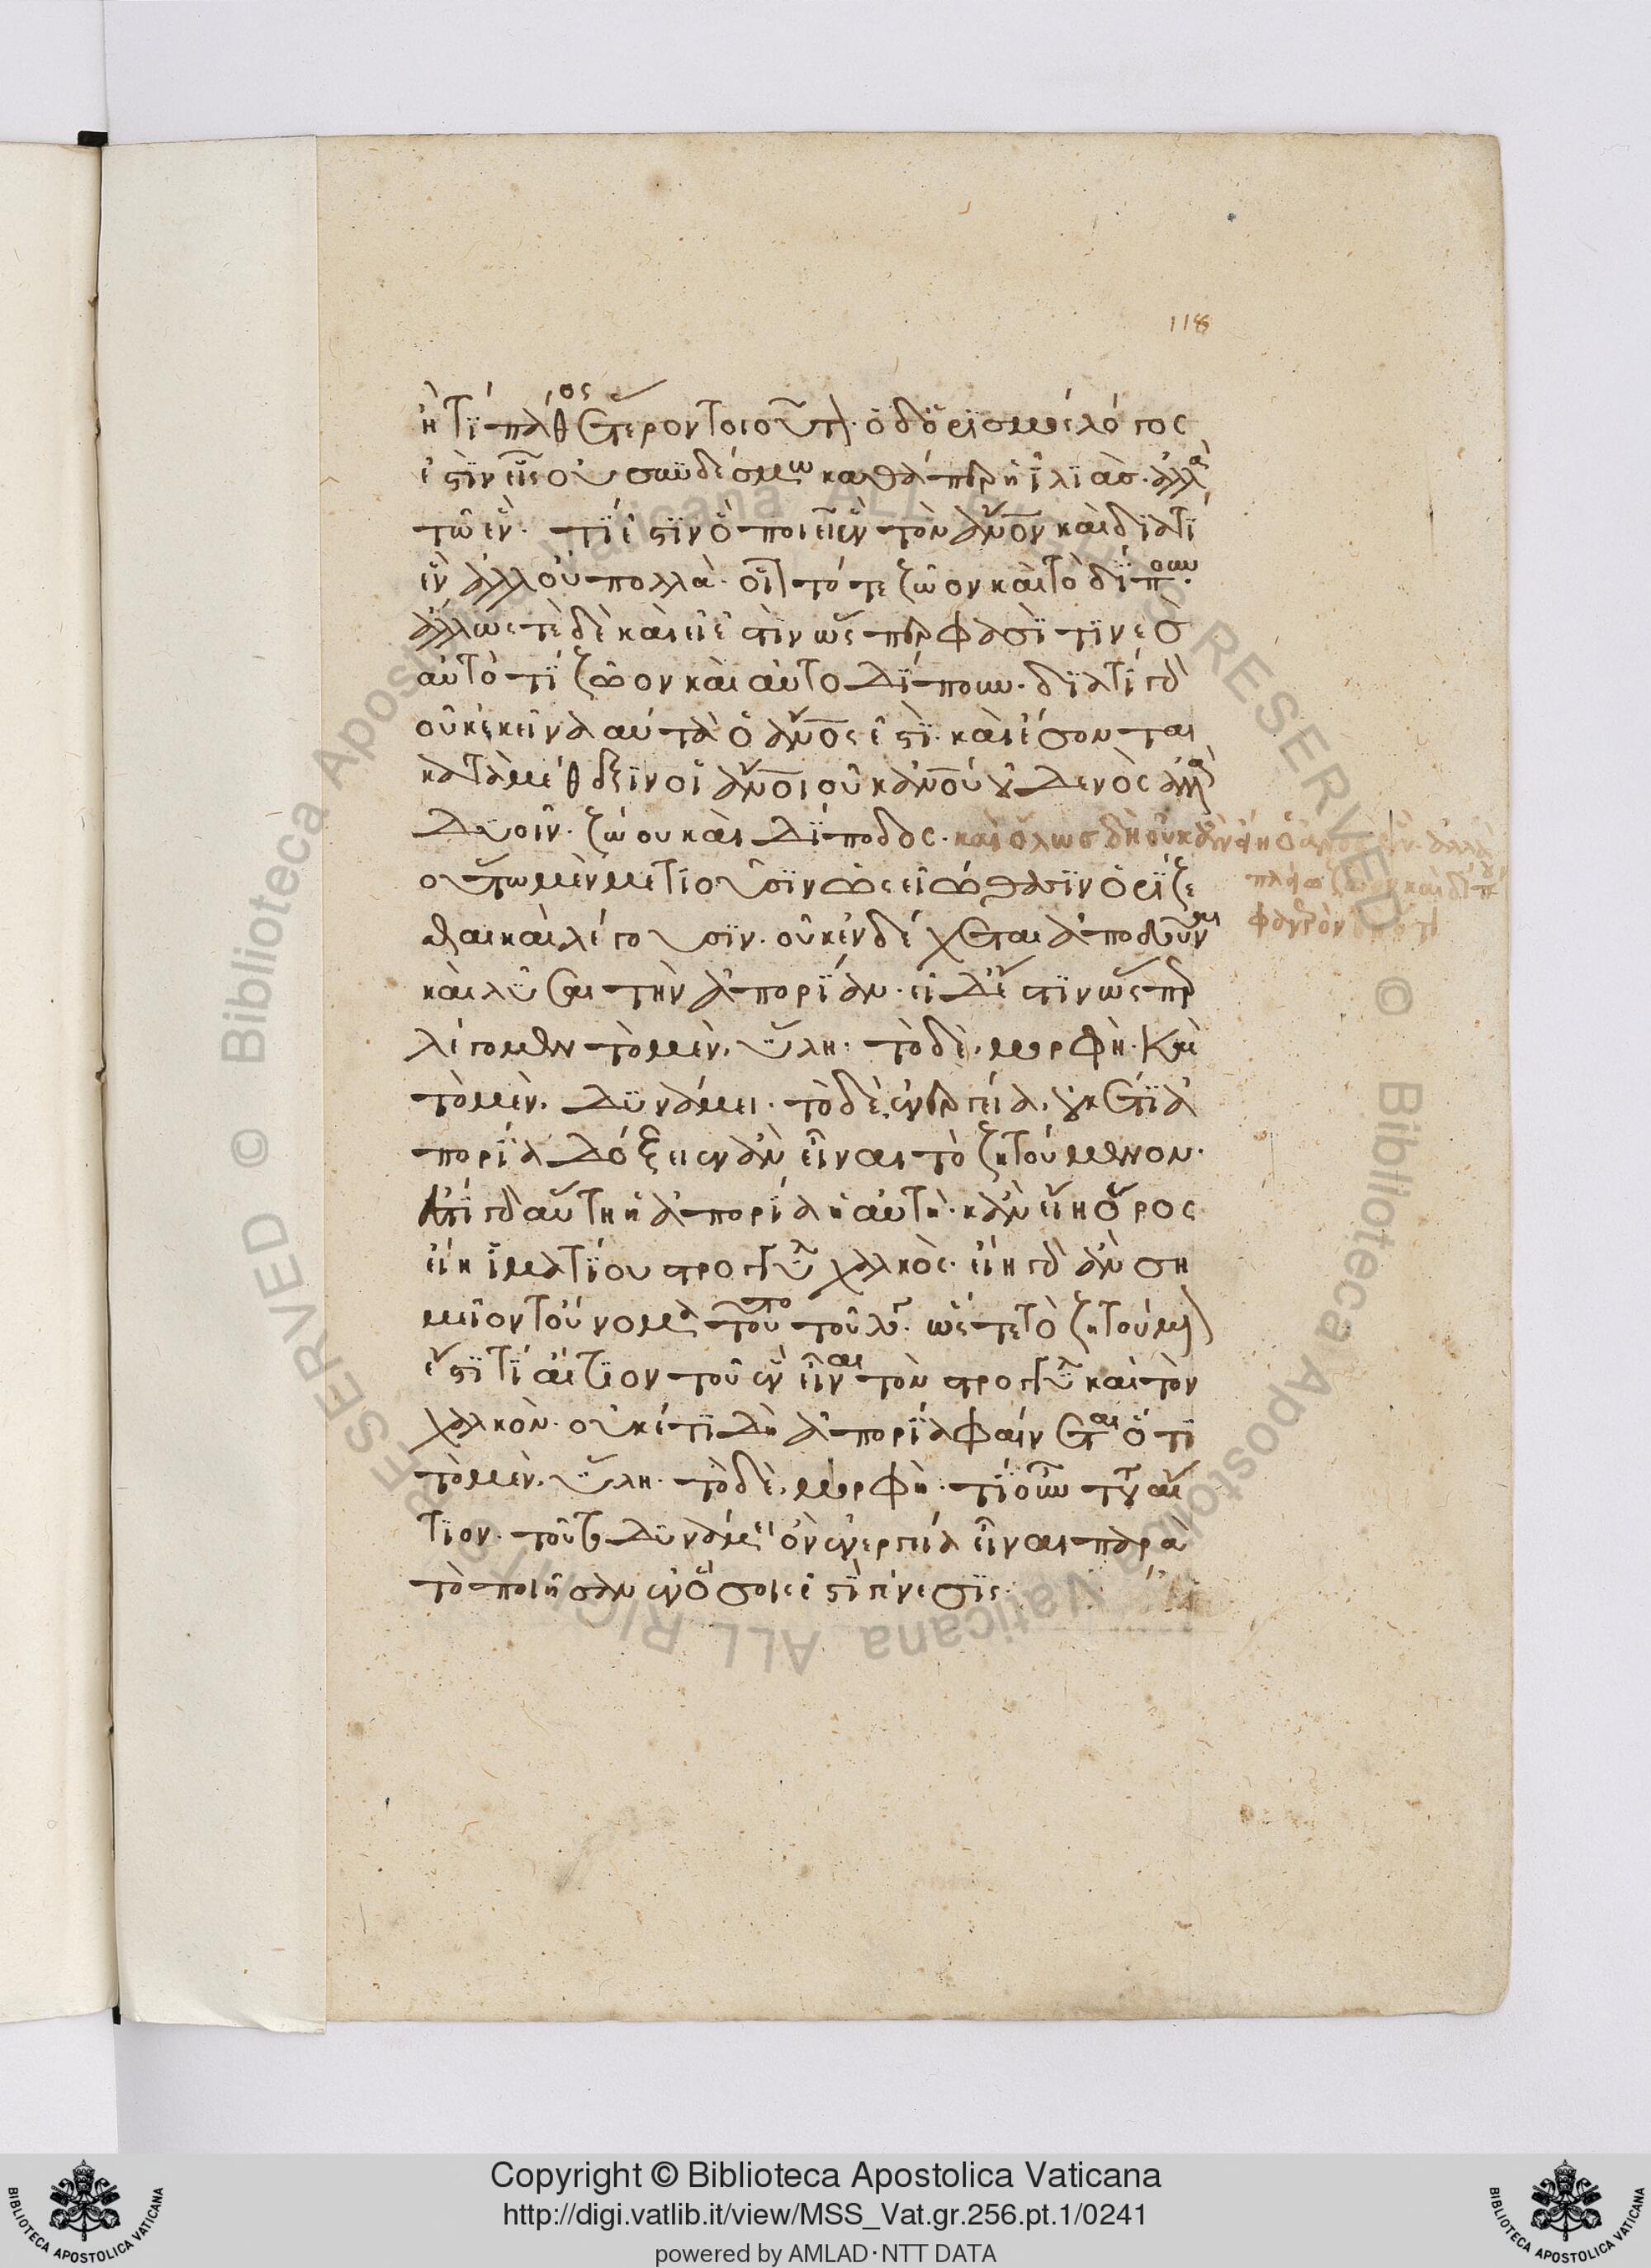 ἤ τι πάθος ἕτερον τοιοῦτον· ὁ δ' ὁρισμὸς λόγος
ἐστὶν εἷς οὐ συνδέσμω καθάπερ ἡ ἰλιὰσ· ἀλλὰ
τῶ ἕν· τί ἐστὶν ὃ ποιεῖ ἓν τὸν ἄνον καὶ διατί
ἓν ἀλλ' οὐ πολλὰ· οἷον τό τε ζῶον καὶ τὸ δίπουν·
ἄλλως τὲ δὲ καὶ εἰ ἐστὶν ὥσπερ φασὶ τινὲσ
αὐτὸ τί ζῶον καὶ αὐτο δίπουν· διατί γὰρ
οὐκ ἐκεῖνα αὐτὰ ὁ ἄνος ἐστὶ· καὶ ἔσονται
κατὰ μέθεξιν οἱ ἄνοι οὐκ ἀνου οὐδενὸς ἀλλὰ
δυοῖν· ζώου καὶ δίποδος· καὶ ὅλωσ δὴ οὐκ ἂν εἴη ὁ ἄνος ἓν· ἀλλὰ
πλείω ζῶον καὶ δίπου
φανερὸν δὴ ὅτι
οὕτω μὲν μετιοῦσιν ὡς εἰώθασιν ὁρίζε
σθαι καὶ λέγουσιν· οὐκ ἐνδέχεται ἀποδοῦναι
καὶ λῦσαι τὴν ἀπορίαν· εἰ δ' ἐστὶν ὥσπερ
λέγομεν τὸ μὲν, ὕλη· τὸ δὲ, μορφὴ· καὶ
τὸ μὲν, δυνάμει· τὸ δὲ, ἐνεργεία, οὐκέτι ἀ
πορία δόξειεν ἂν εἶναι τὸ ζητούμενον·
ἔστι γὰρ αὕτη ἡ ἀπορία ἡ αὐτὴ· κἂν εἴη ὅρος
εἴη ἱματίου στρογγύλος χαλκὸς· εἴη γὰρ ἂν ση
μεῖον τοὔνομα τοῦτο τοῦ λόγου· ὥστε τὸ ζητούμενον
ἐστὶ τί αἴτιον τοῦ ἓν εἶναι τὸν στρογγύλον καὶ τὸν
χαλκὸν· οὐκέτι δὴ ἀπορία φαίνεται ὅτι
τὸ μὲν, ὕλη· τὸ δὲ, μορφὴ· τί οὖν τούτου αἴ
τιον· τοῦ τὸ δυνάμει ὂν ἐνεργεία εἶναι παρὰ
τὸ ποιῆσαν ἐν ὅσοις ἐστὶ γένεσις·
118
Copyright © Biblioteca Apostolica Vaticana
http://digi.vatlib.it/view/MSS_Vat.gr.256.pt.1/0241
powered by AMLAD·NTT DATA